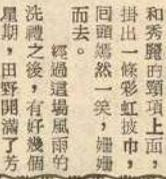 和秀麗的頸項上面，
掛出一條彩虹披巾，
囘頭嫣然一笑，姍姍
而去。
經過這場風雨的
洗禮之後，有好幾個
星期，田野開滿了芳